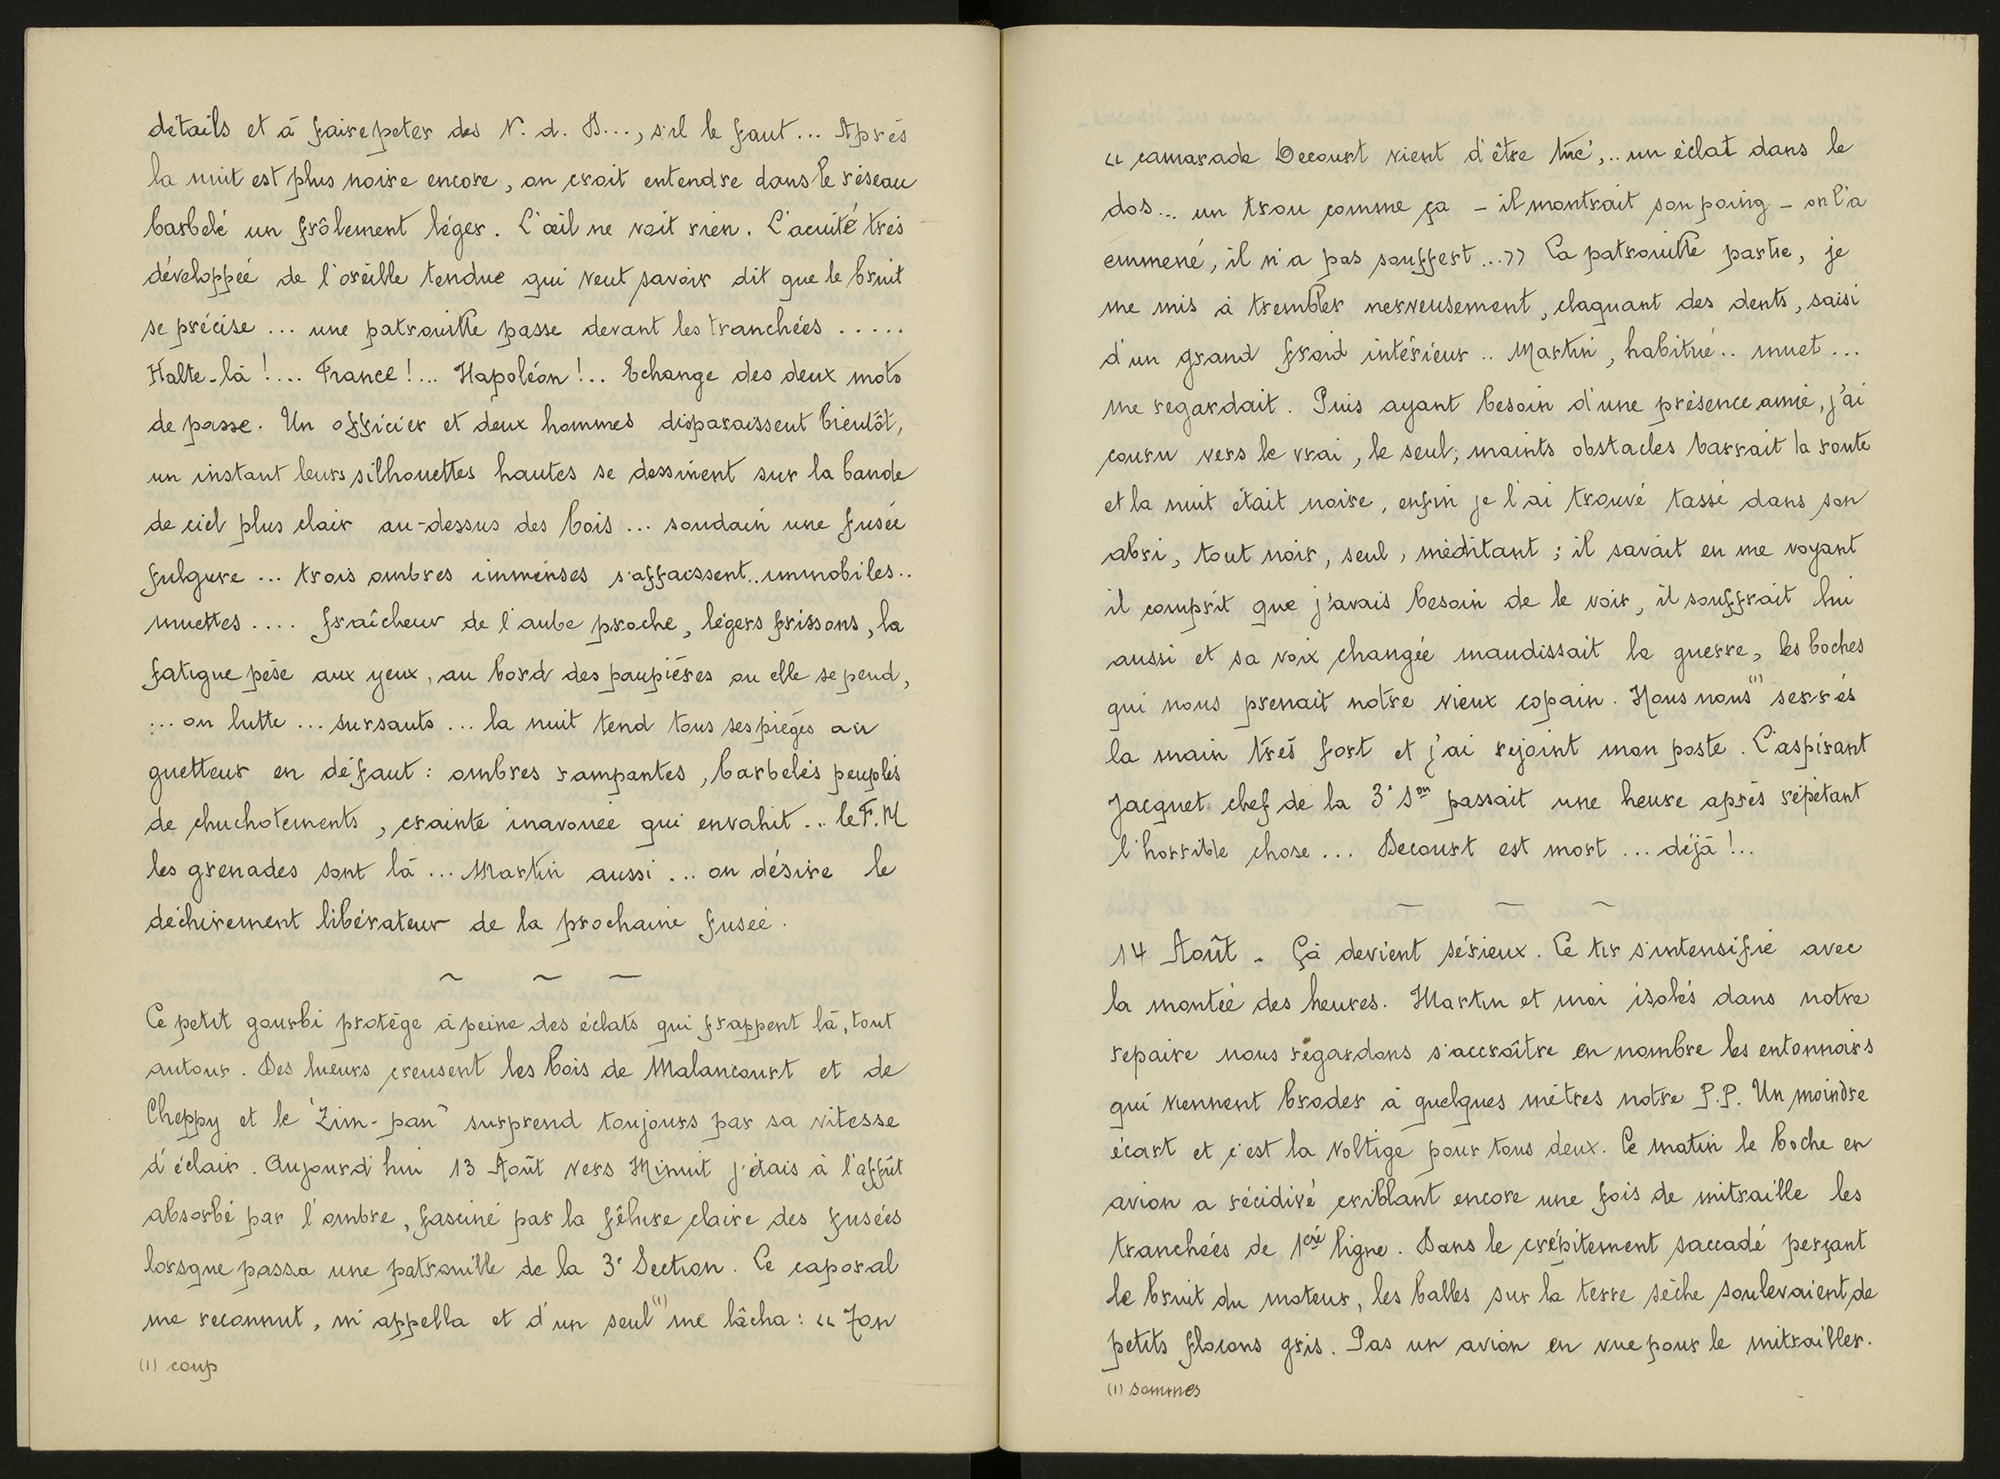 détails et à faire peter des N. d. D..., s'il le faut... Après
la nuit est plus noire encore, on croit entendre dans le réseau
barbelé un frôlement léger. L'œil ne voit rien. L'acuité très
développée de l'oreille tendue qui veut savoir dit que le bruit
se précise ... une patrouille passe devant les tranchées .....
Halte-là !... France !... Napoléon !.. Echange des deux mots
de passe. Un officier et deux hommes disparaissent bientôt,
un instant leurs silhouettes hautes se dessinent sur la bande
de ciel plus clair au-dessus des bois ... soudain une fusée
fulgure ... trois ombres immenses s'affaissent..immobiles..
muettes .... fraîcheur de l'aube proche, légers frissons, la
fatigue pèse aux yeux, au bord des paupières ou elle se pend,
... on lutte ... sursauts ... la nuit tend tous ses pièges au
guetteur en défaut : ombres rampantes, barbelés peuplés
de chuchotements, crainte inavouée qui envahit ... le F.M
les grenades sont là ... Martin aussi ... on désire le
déchirement libérateur de la prochaine fusée.
~ ~ ~
Ce petit gourbi protège à peine des éclats qui frappent là, tout
autour. Des lueurs creusent les bois de Malancourt et de
Cheppy et le "Zim-pan" surprend toujours par sa vitesse
d'éclair. Aujourd'hui 13 Août vers Minuit j'étais à l'affût
absorbé par l'ombre, fasciné par la fêlure claire des fusées
lorsque passa une patrouille de la 3e Section. Le caporal
me reconnut, m'appella et d'un seul (1) me lâcha : « Ton
(1) coup
« camarade Decourt vient d'être tué,.. un éclat dans le
dos... un trou comme ça - il montrait son poing - on l'a
emmené, il n'a pas souffert ...» La patrouille partie, je
me mis à trembler nerveusement, claquant des dents, saisi
d'un grand froid intérieur .. Martin, habitué.. muet ...
me regardait. Puis ayant besoin d'une présence amie, j'ai
couru vers le vrai, le seul; maints obstacles barrait la route
et la nuit était noire, enfin je l'ai trouvé tassé dans son
abri, tout noir, seul, méditant ; il savait en me voyant
il comprit que j'avais besoin de le voir, il souffrait lui
aussi et sa voix changée maudissait la guerre, les boches
qui nous prenait notre vieux copain. Nous nous (1) serrés
la main très fort et j'ai rejoint mon poste. L'aspirant
Jacquet chef de la 3e Son passait une heure après répétant
l'horrible chose ... Decourt est mort ... déjà !..
~ ~ ~
14 Août - Çà devient sérieux. Le tir s'intensifie avec
la montée des heures. Martin et moi isolés dans notre
repaire nous regardons s'accroître en nombre les entonnoirs
qui viennent broder à quelques mètres notre P.P. Un moindre
écart et c'est la voltige pour tous deux. Ce matin le boche en
avion a récidivé criblant encore une fois de mitraille les
tranchées de 1ère ligne. Dans le crépitement saccadé perçant
le bruit du moteur, les balles sur la terre sèche soulevaient de
petits flocons gris. Pas un avion en vue pour le mitrailler.
(1) sommes